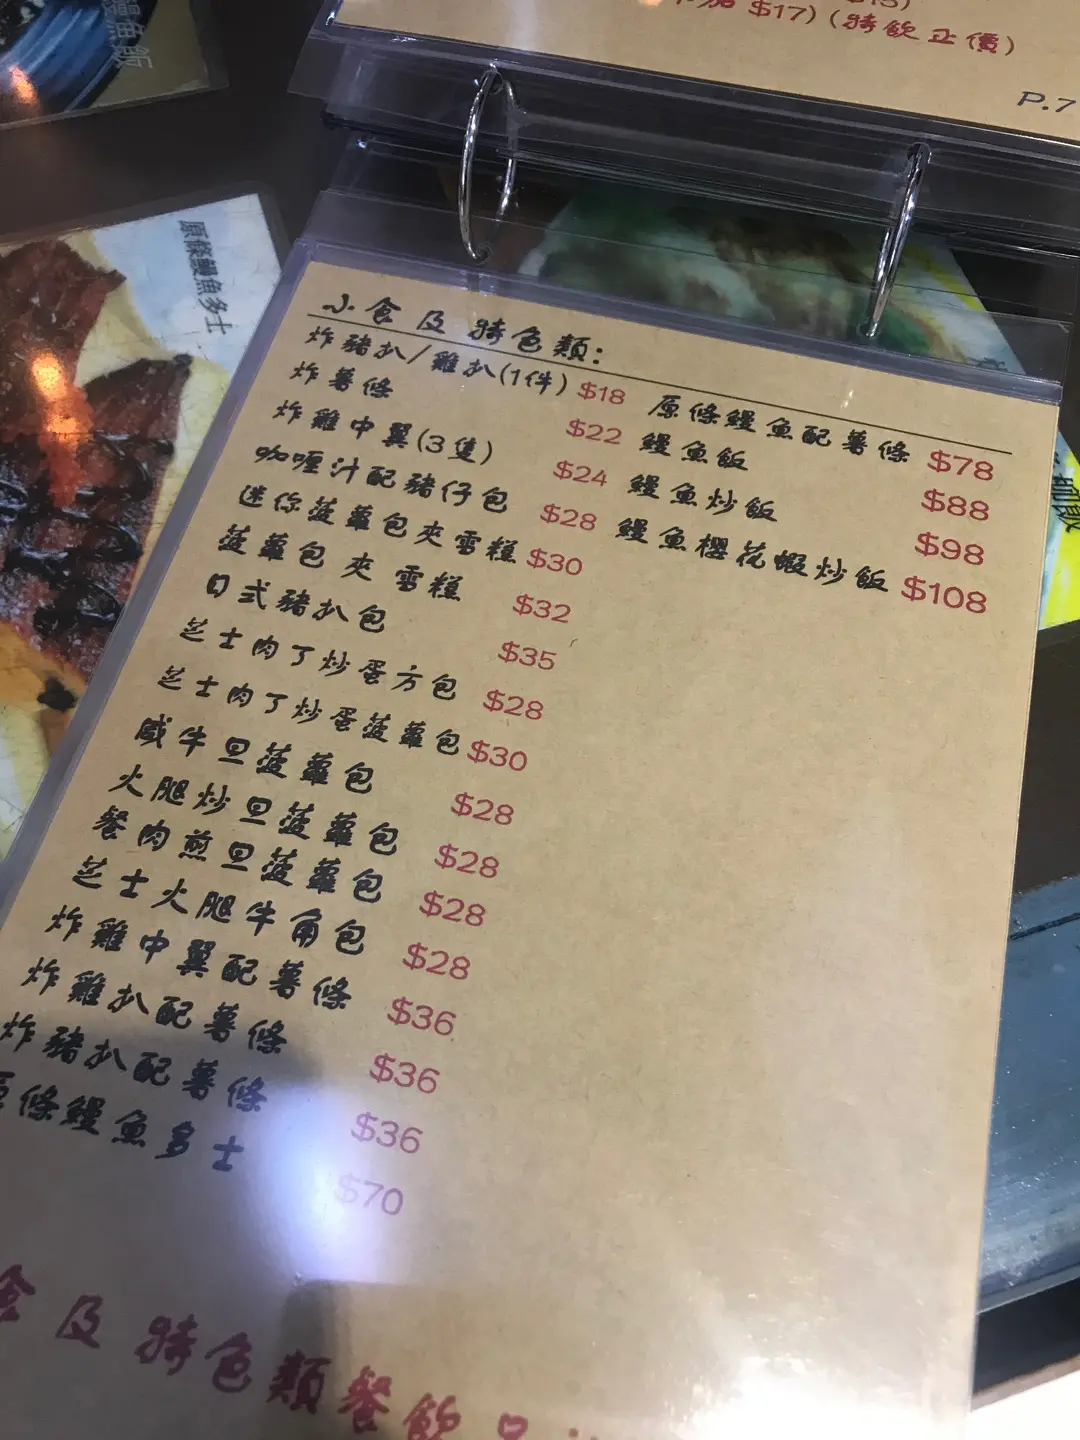 $15)
$17)(特飲正價)
P.7
鰻魚飯
原條鰻魚多士
小食及特色類:
炸豬扒/雞扒(1件) $18
炸薯條 $22
炸雞中翼(3隻) $24
咖喱汁配豬仔包 $28
迷你菠蘿包夾雪糕 $30
菠蘿包夾雪糕 $32
日式豬扒包 $35
芝士肉丁炒蛋方包 $28
芝士肉丁炒蛋菠蘿包 $30
咸牛旦菠蘿包 $28
火腿炒旦菠蘿包 $28
餐肉煎旦菠蘿包 $28
芝士火腿牛角包 $28
炸雞中翼配薯條 $36
炸雞扒配薯條 $36
炸豬扒配薯條 $36
原條鰻魚多士 $70
原條鰻魚配薯條 $78
鰻魚飯 $88
鰻魚炒飯 $98
鰻魚櫻花蝦炒飯 $108
食及特色類餐飲